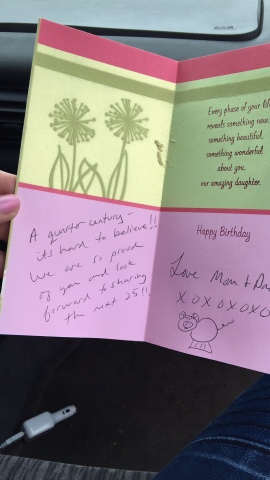 A quarter century -
its hard to believe!!
We are so proud
of you and look
forward to sharing
the next 25!!
Every phase of your
reveals something new,
something beautiful,
something wonderful
about you,
our amazing daughter.
Happy Birthday
Love Mom +
XOXOXOXO